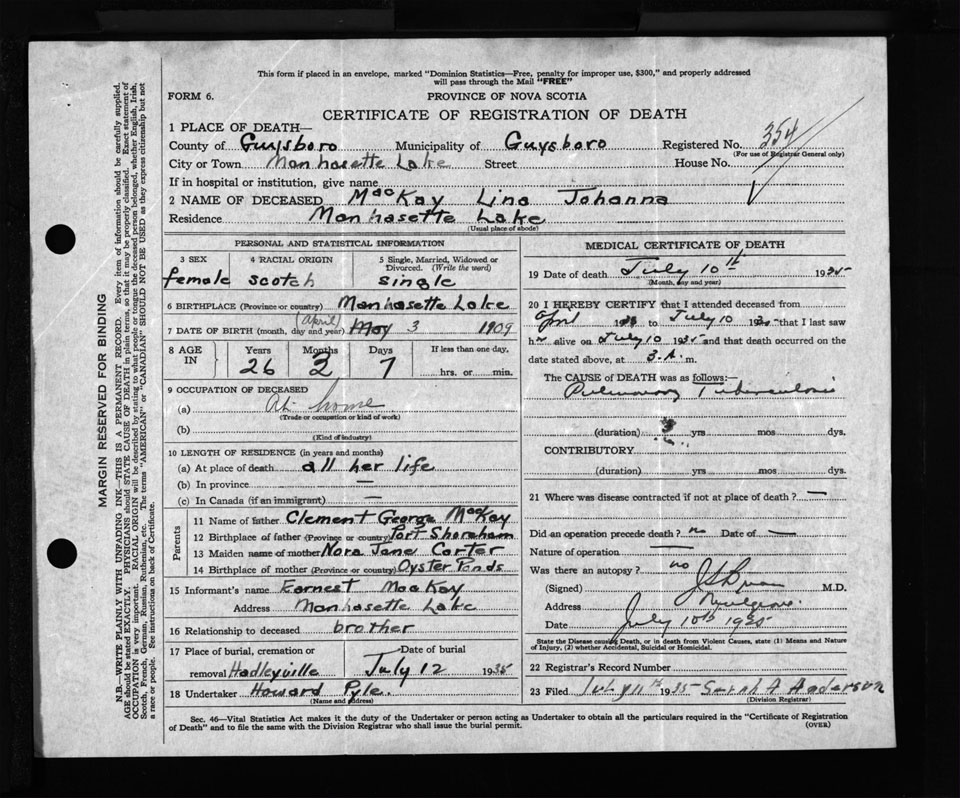 This form if placed in an envelope, marked "Dominion Statistics—Free, penalty for improper use, $300," and properly addressed
will pass through the Mail "FREE"
FORM 6.
PROVINCE OF NOVA SCOTIA
CERTIFICATE OF REGISTRATION OF DEATH
1 PLACE OF DEATH—
County of Guysboro Municipality of Guysboro Registered No. 354
(For use of Registrar General only)
City or Town Manhasette Lake Street House No.
If in hospital or institution, give name
2 NAME OF DECEASED MacKay Lina Johanna
Residence Manhasette Lake
(Usual place of abode)
PERSONAL AND STATISTICAL INFORMATION
3 SEX 4 RACIAL ORIGIN 5 Single, Married, Widowed or
Divorced. (Write the word)
female scotch single
6 BIRTHPLACE (Province or country) Manhasette Lake
(April)
7 DATE OF BIRTH (month, day and year) May 3 1909
8 AGE IN Years Months Days If less than one day,
26 2 7 hrs. or min.
9 OCCUPATION OF DECEASED
(a) At home
(Trade or occupation or kind of work)
(b)
(Kind of industry)
10 LENGTH OF RESIDENCE (in years and months)
(a) At place of death all her life
(b) In province —
(c) In Canada (if an immigrant) —
Parents
11 Name of father Clement George MacKay
12 Birthplace of father (Province or country) Port Shoreham
13 Maiden name of mother Nora Jane Carter
14 Birthplace of mother (Province or country) Oyster Ponds
15 Informant's name Earnest MacKay
Address Manhasette Lake
16 Relationship to deceased brother
17 Place of burial, cremation or Date of burial
removal Hadleyville July 12 1935
18 Undertaker Howard Pyle.
(Name and address)
MEDICAL CERTIFICATE OF DEATH
19 Date of death July 10th 1935
(Month, day and year)
20 I HEREBY CERTIFY that I attended deceased from
April 1935 to July 10 1935 that I last saw
her alive on July 10 1935 and that death occurred on the
date stated above, at 3.A. m.
The CAUSE of DEATH was as follows:—
Pulmonary Tuberculosis
(duration) 3 yrs mos dys.
CONTRIBUTORY
(duration) yrs mos dys.
21 Where was disease contracted if not at place of death? —
Did an operation precede death? no Date of —
Nature of operation —
Was there an autopsy? no
(Signed) M.D.
Address Mulgrave
Date July 10th 1935
State the Disease causing Death, or in death from Violent Causes, state (1) Means and Nature
of Injury, (2) whether Accidental, Suicidal or Homicidal.
22 Registrar's Record Number
23 Filed July 11th 1935 Sarah A Anderson
(Division Registrar)
Sec. 46—Vital Statistics Act makes it the duty of the Undertaker or person acting as Undertaker to obtain all the particulars required in the "Certificate of Registration
of Death" and to file the same with the Division Registrar who shall issue the burial permit.
(OVER)
MARGIN RESERVED FOR BINDING
N.B.—WRITE PLAINLY WITH UNFADING INK—THIS IS A PERMANENT RECORD. Every item of information should be carefully supplied.
AGE should be stated EXACTLY. PHYSICIANS should STATE CAUSE OF DEATH in plain terms, so that it may be properly classified. Exact statement of
OCCUPATION is very important. RACIAL ORIGIN will be described by stating to what people or tongue the deceased person belonged, whether English, Irish,
Scotch, French, German, Russian, Ruthenian, etc. The terms "AMERICAN" or "CANADIAN" SHOULD NOT BE USED as they express citizenship but not
a race or people. See instructions on back of Certificate.